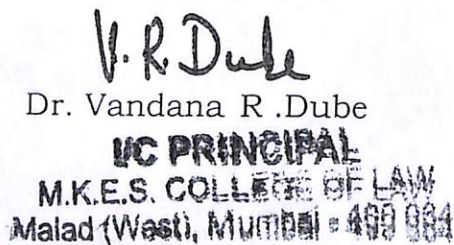 V. R. Dube
Dr. Vandana R .Dube
I/C PRINCIPAL
M.K.E.S. COLLEGE OF LAW
Malad (West), Mumbai -